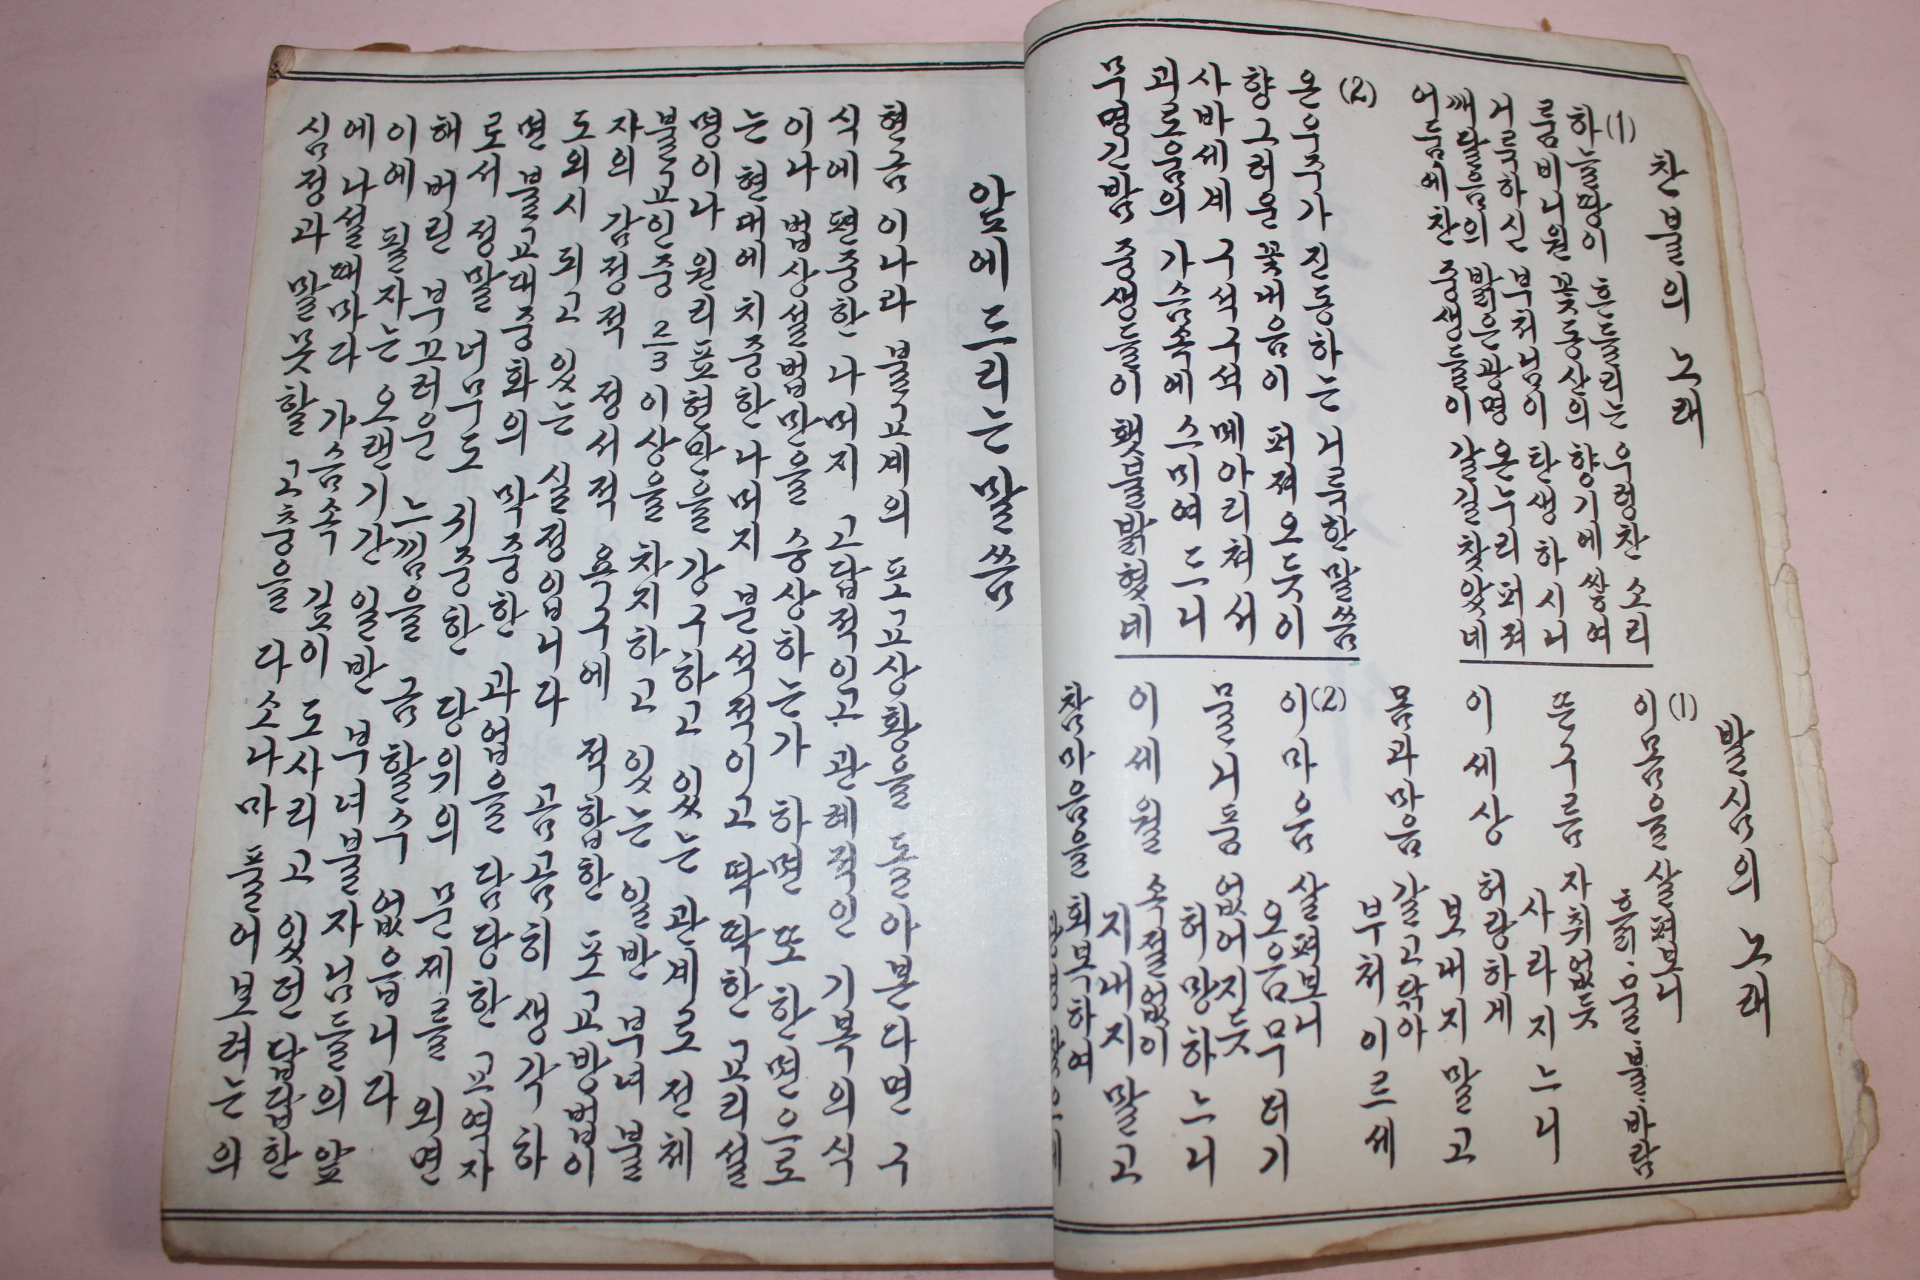 찬불의 노래
(1)
하늘땅이 흔들리는 우렁찬 소리
룸비니원 꽃동산의 향기에 쌓여
거룩하신 부처님이 탄생하시니
깨달음의 밝은광명 온누리 퍼져
어둠에찬 중생들이 갈길찾았네
(2)
온우주가 진동하는 거룩한말씀
향그러운 꽃내음이 퍼져오듯이
사바세계 구석구석 메아리쳐서
괴로움의 가슴속에 스미여드니
무명긴밤 중생들이 횃불밝혔네
발심의 노래
(1)
이몸을 살펴보니
흙.물.불.바람
뜬구름 자취없듯
사라지느니
이세상 허랑하게
보내지말고
몸과마음 갈고닦아
부처이르세
(2)
이마음 살펴보니
오음무더기
물거품 없어지듯
허망하느니
이세월 속절없이
지내지말고
참마음을 회복하여
앞에드리는 말씀
현금 이나라 불교계의 포교상황을 돌아본다면 구
식에 편중한 나머지 고답적인고 관례적인 기복의식
이나 법상설법만을 숭상하는가 하면 또 한면으로
는 현대에 치중한나머지 분석적이고 딱딱한 교리설
명이나 원리표현만을 강구하고 있는 관계로 전체
불교인중 2/3 이상을 차지하고 있는 일반 부녀 불
자의 감정적 정서적 욕구에 적합한 포교방법이
도외시 되고 있는 실정입니다 곰곰히 생각하
면 불교대중화의 막중한 과업을 담당한 교역자
로서 정말 너무도 귀중한 당위의 문제를 외면
해 버린 부끄러운 느낌을 금할수 없읍니다
이에 필자는 오랜기간 일반 부녀불자님들의 앞
에 나설때마다 가슴속 깊이 도사리고 있던 답답한
심정과 말못할 고충을 다소나마 풀어보려는 의